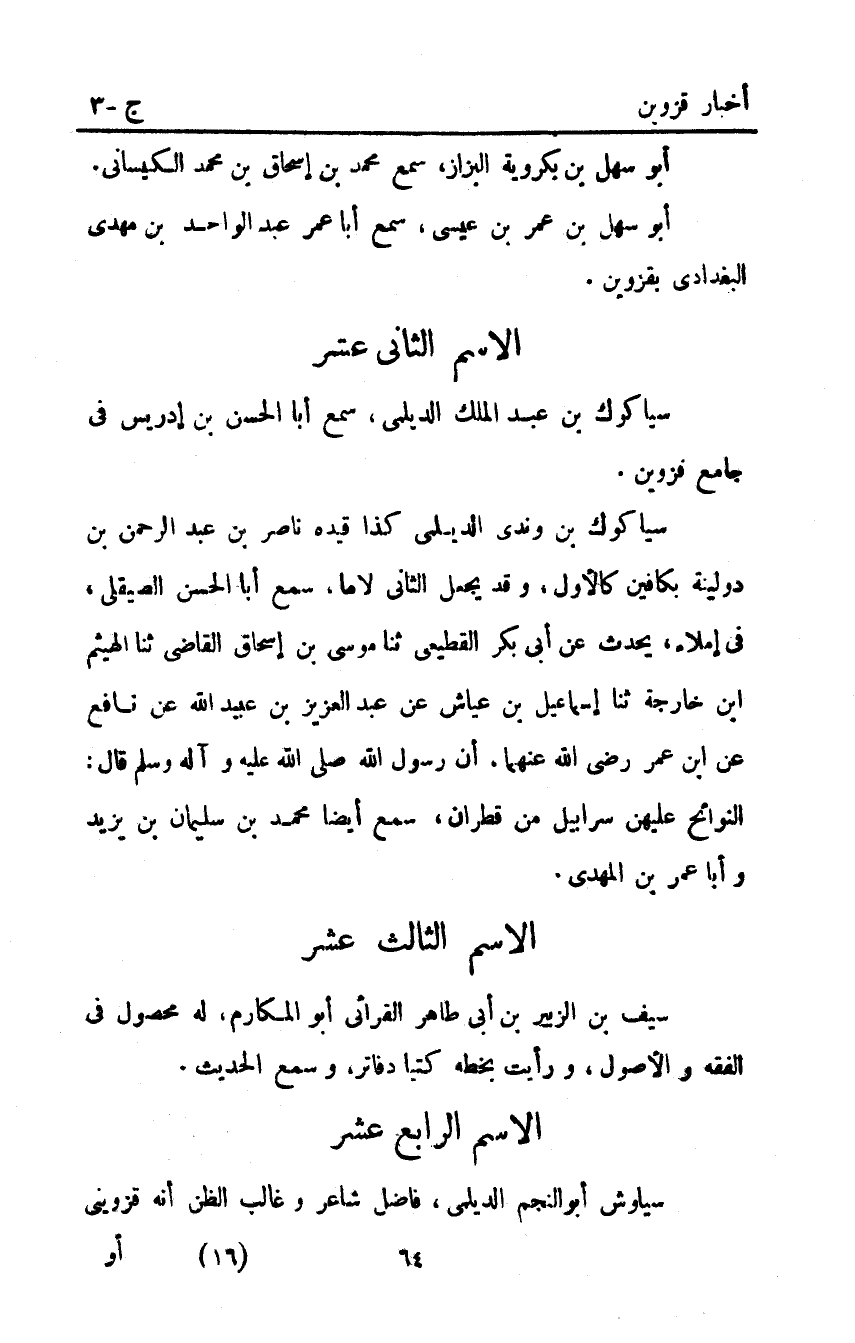 أخبار قزوين ج -٣
أبو سهل بن بكروية البزاز، سمع محمد بن إسحاق بن محمد الكيسانى.
أبو سهل بن عمر بن عيسى، سمع أبا عمر عبد الواحد بن مهدى
البغدادى بقزوين.
الاسم الثانى عشر
سياكوك بن عبد الملك الديلمى، سمع أبا الحسن بن إدريس فى
جامع قزوين.
سياكوك بن وندى الديلمى كذا قيده ناصر بن عبد الرحمن بن
دولينة بكافين كالأول، و قد يجعل الثانى لاما. سمع أبا الحسن الصيقلى،
فى إملاء، يحدث عن أبى بكر القطيعى ثنا موسى بن إسحاق القاضى ثنا الهيثم
ابن خارجة ثنا إسماعيل بن عياش عن عبد العزيز بن عبيد الله عن نافع
عن ابن عمر رضى الله عنهما. أن رسول الله صلى الله عليه و آله وسلم قال:
النوائح عليهن سرابيل من قطران، سمع أيضا محمد بن سليمان بن يزيد
و أبا عمر بن المهدى.
الاسم الثالث عشر
سيف بن الزبير بن أبى طاهر الفرائى أبو المكارم، له محصول فى
الفقه و الأصول، و رأيت بخطه كتبا دفاتر، و سمع الحديث.
الاسم الرابع عشر
سياوش أبوالنجم الديلمى، فاضل شاعر و غالب الظن أنه قزوينى
٦٤ (١٦) أو